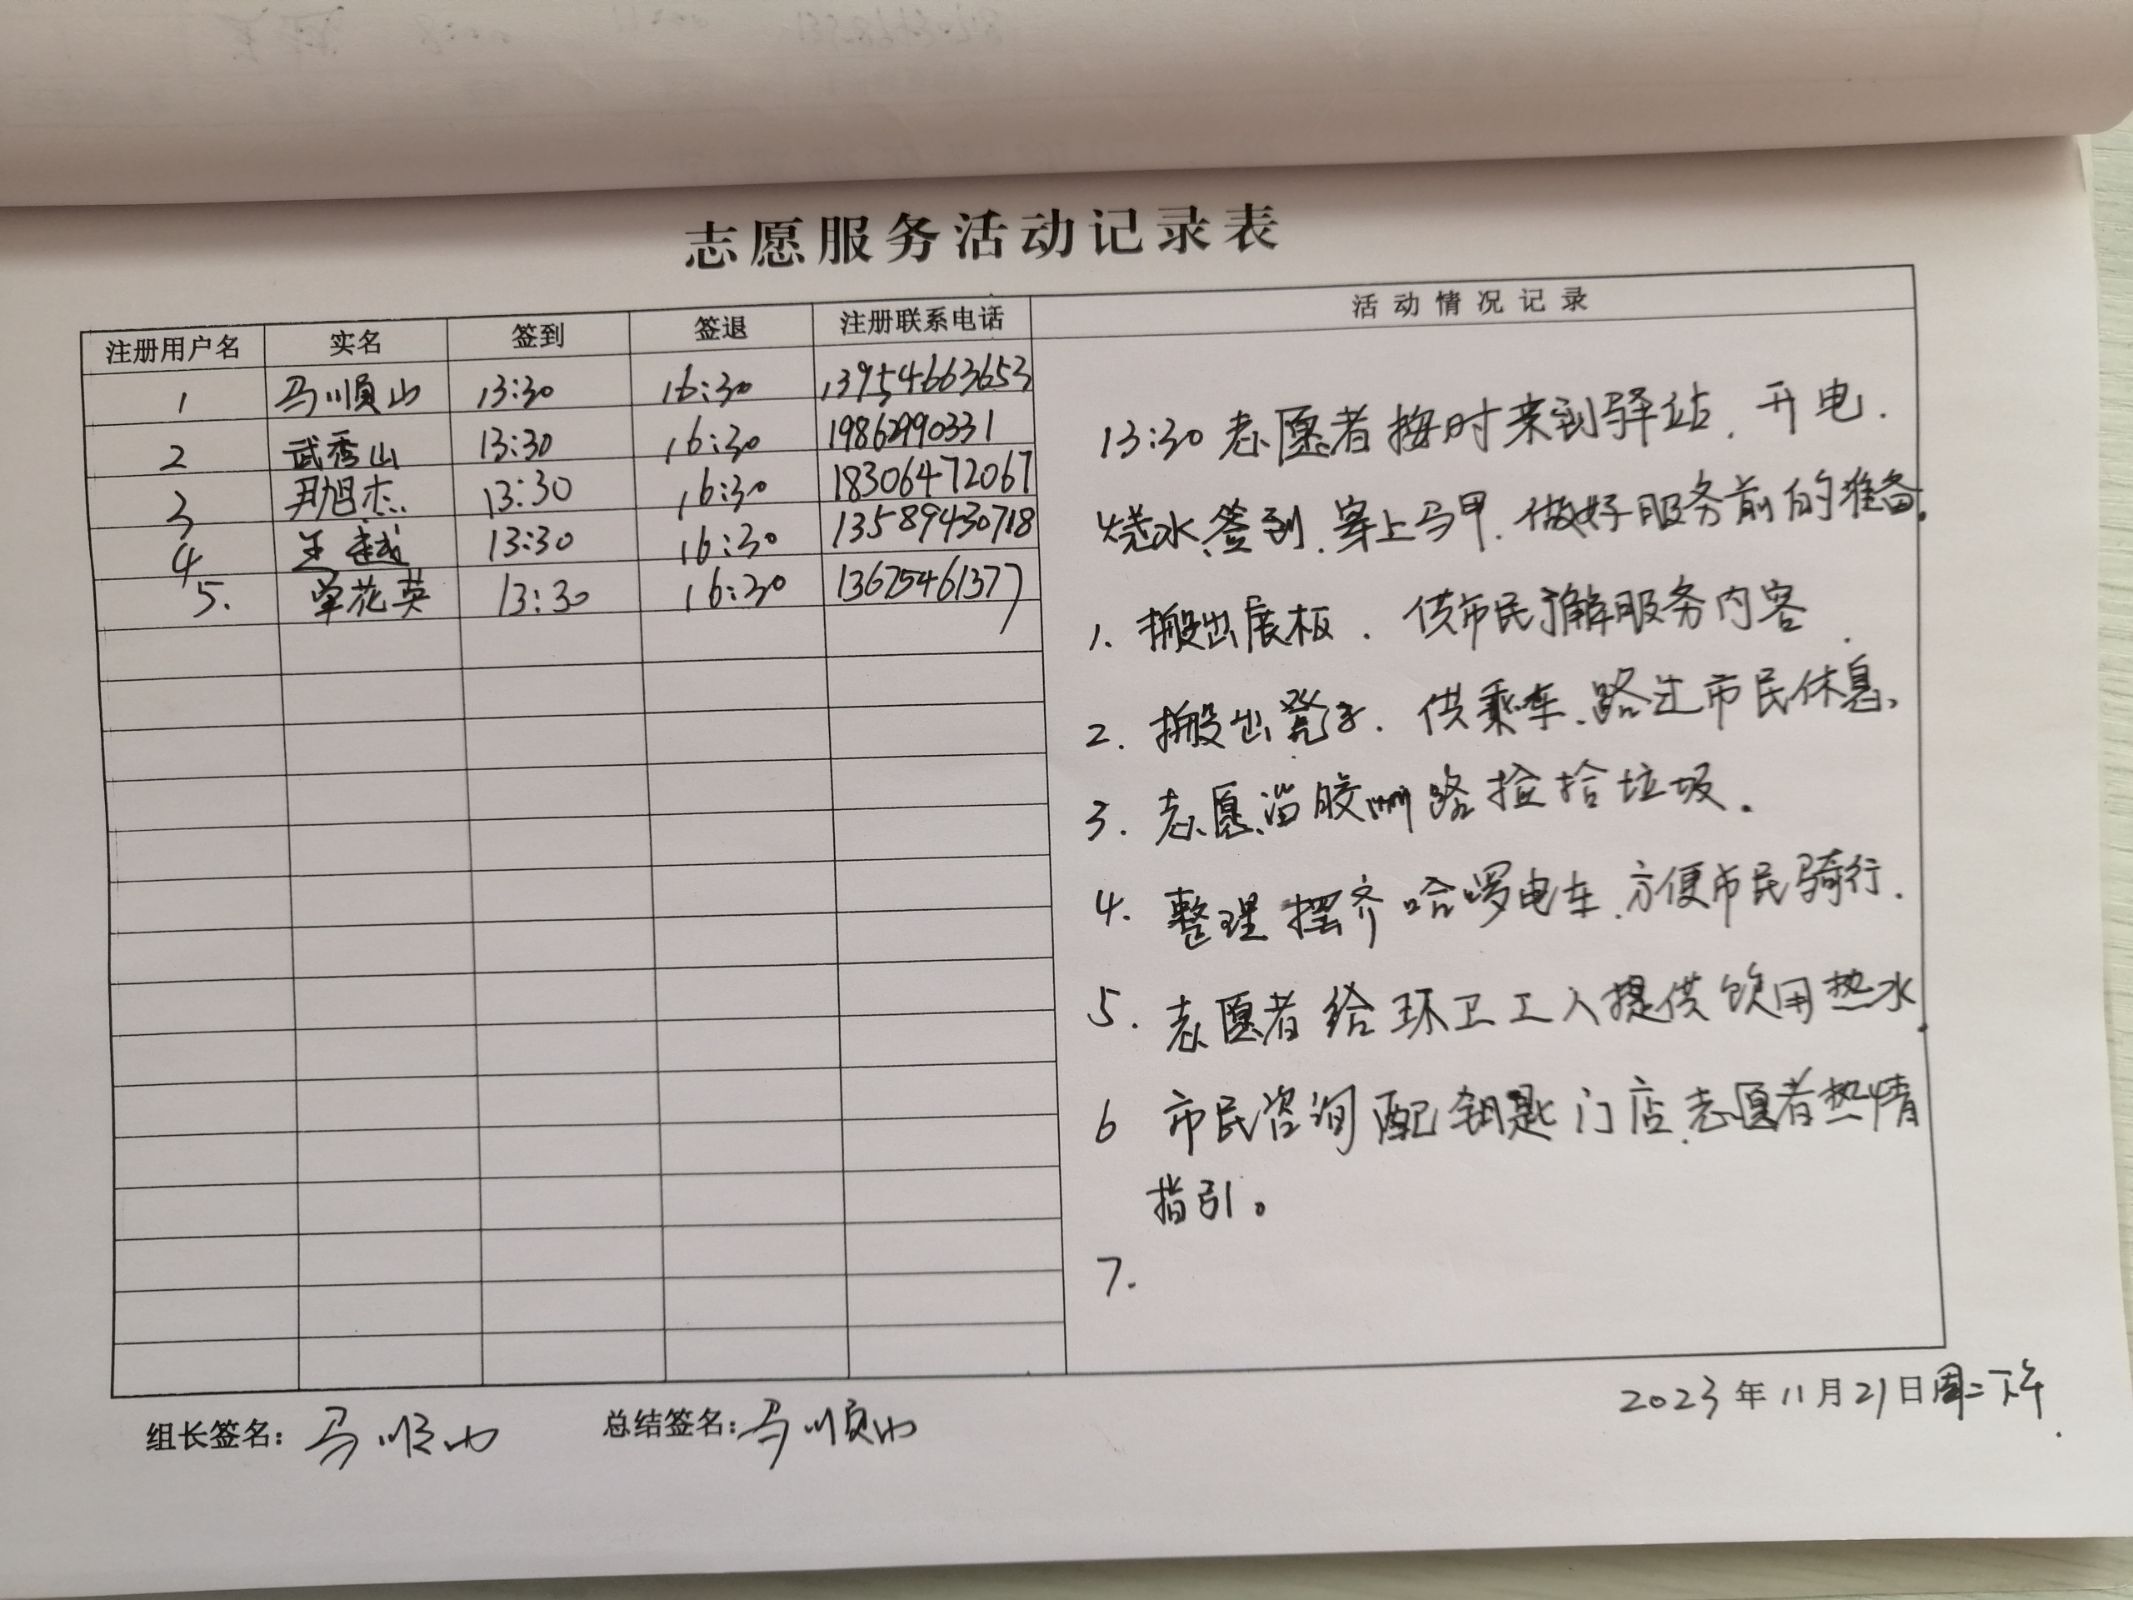 志愿服务活动记录表
注册用户名 实名 签到 签退 注册联系电话 活动情况记录
1 马顺山 13:30 16:30 13954663653
2 武秀山 13:30 16:30 19862990331
3 尹旭杰 13:30 16:30 18306472067
4 王越 13:30 16:30 13589430718
5. 单花英 13:30 16:30 13675461377
13:30 志愿者按时来到驿站、开电、
烧水、签到、穿上马甲、做好服务前的准备。
1. 搬出展板、供市民了解服务内容.
2. 搬出凳子、供乘车、路过市民休息、
3. 志愿沿胶州路捡拾垃圾。
4. 整理摆齐哈啰电车、方便市民骑行.
5. 志愿者给环卫工人提供饮用热水.
6 市民咨询配钥匙门店、志愿者热情
指引。
7.
组长签名: 马顺山 总结签名: 马顺山 2023年11月21日周二下午.